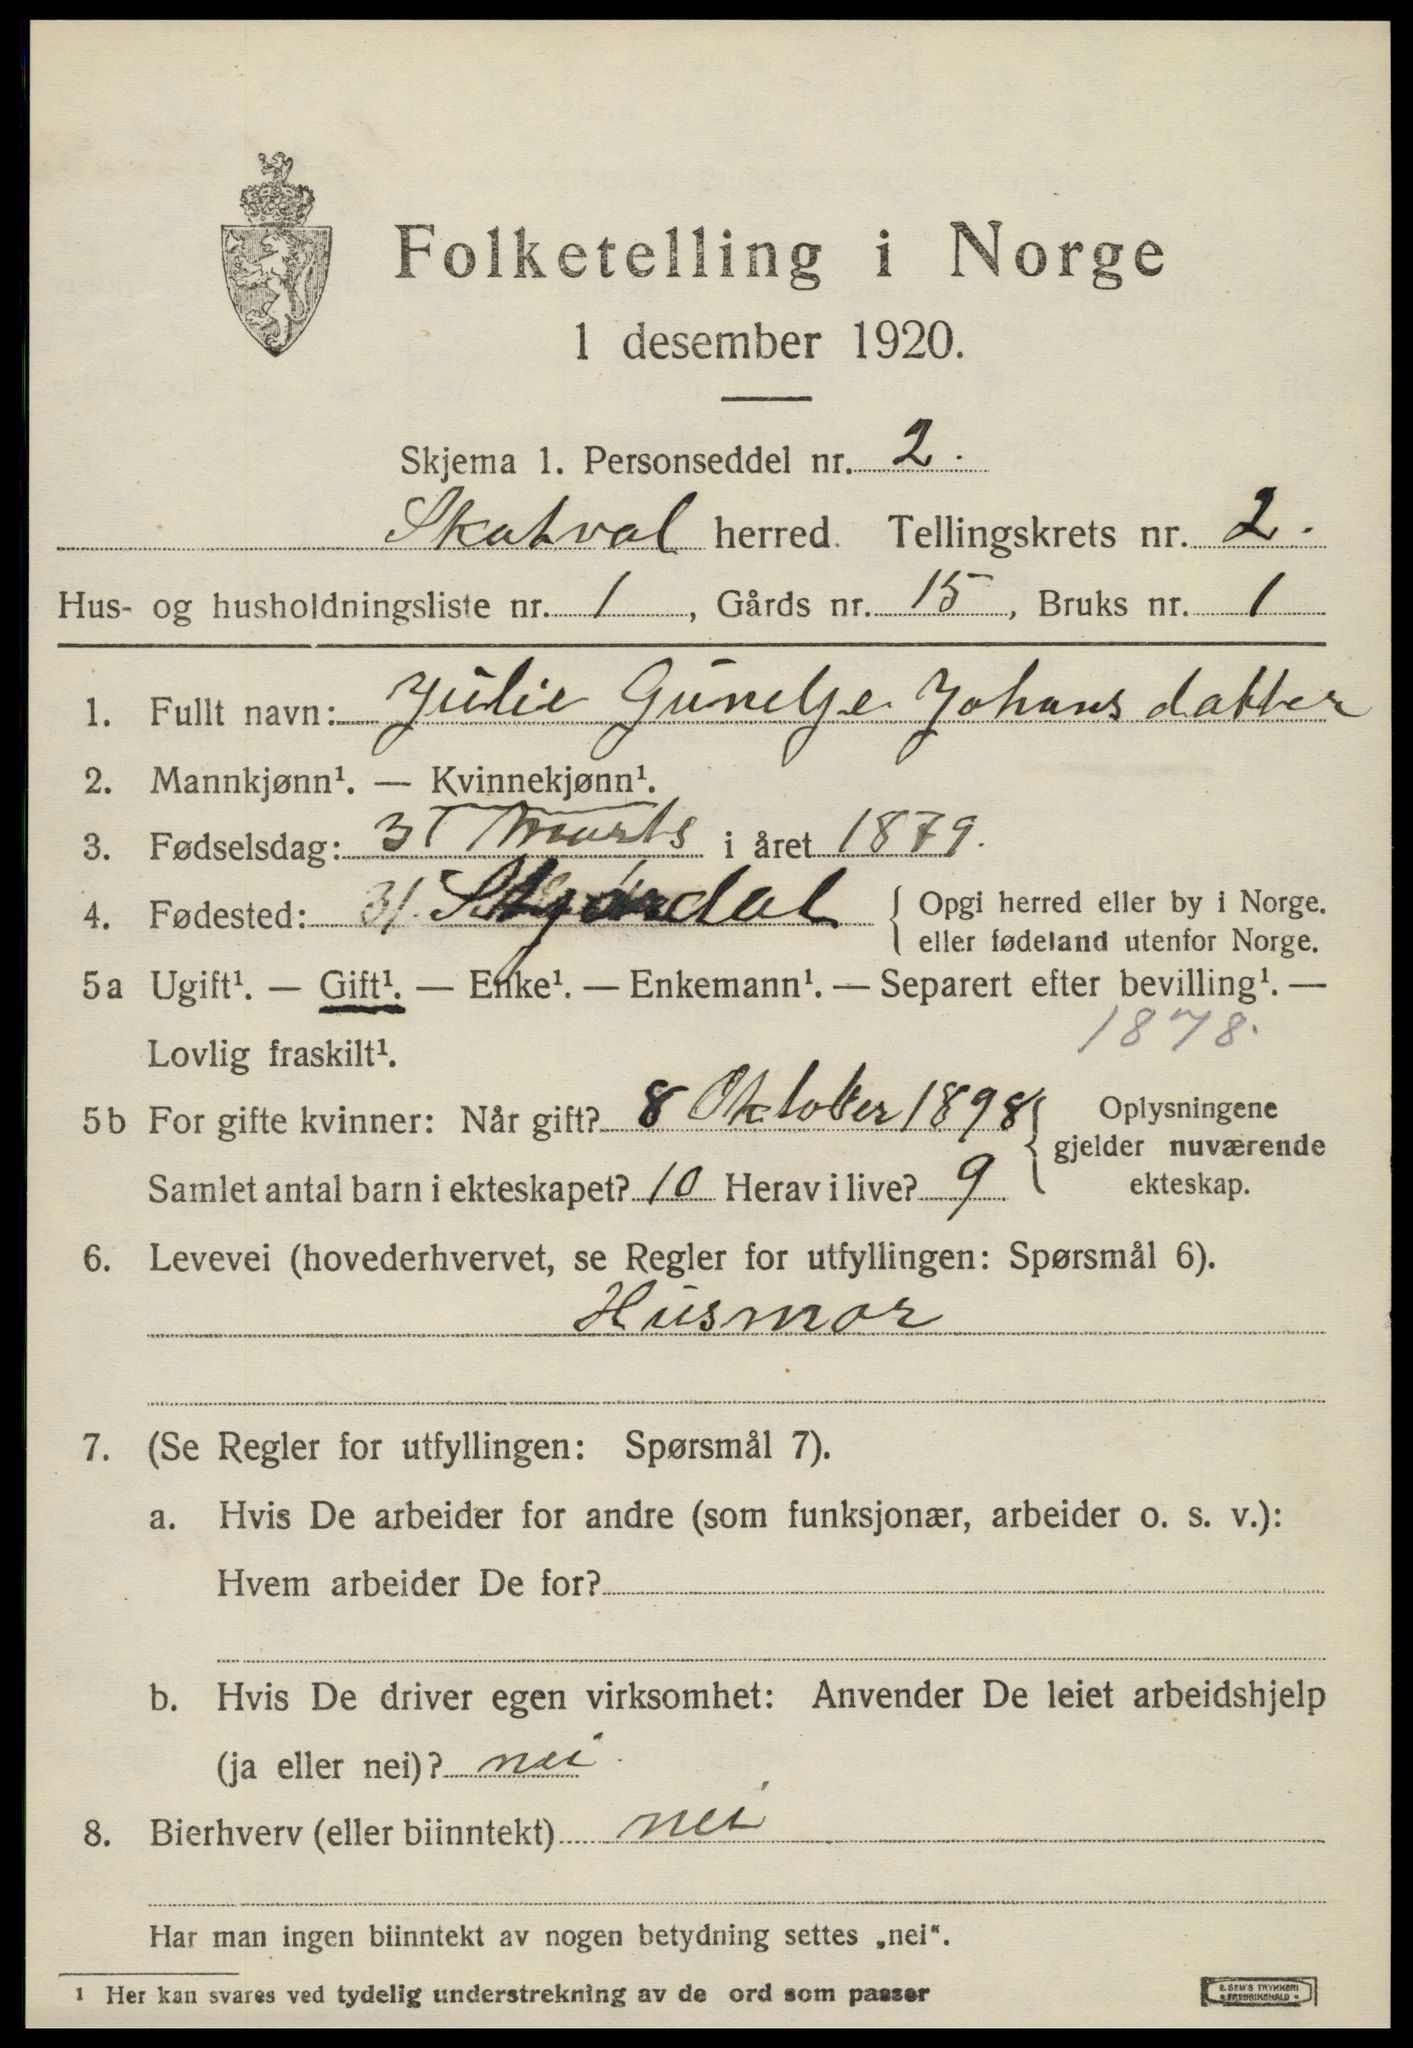 Folketelling i Norge
1 desember 1920.
Skjema 1. Personseddel nr. 2.
Skatval herred. Tellingskrets nr. 2.
Hus- og husholdningsliste nr. 1, Gårds nr. 15, Bruks nr. 1
1. Fullt navn: Julie Johansdatter
2. Mannkjønn¹. — Kvinnekjønn¹.
3. Fødselsdag: 31 Marts i året 1879.
4. Fødested: 31. Stjørdal { Opgi herred eller by i Norge.
eller fødeland utenfor Norge.
5a Ugift¹. — Gift¹. — Enke¹. — Enkemann¹. — Separert efter bevilling¹. —
Lovlig fraskilt¹. 1878.
5b For gifte kvinner: Når gift? 8 Oktober 1898 { Oplysningene
gjelder nuværende
Samlet antal barn i ekteskapet? 10 Herav i live? 9 ekteskap.
6. Levevei (hovederhvervet, se Regler for utfyllingen: Spørsmål 6).
Husmor
7. (Se Regler for utfyllingen: Spørsmål 7).
a. Hvis De arbeider for andre (som funksjonær, arbeider o. s. v.):
Hvem arbeider De for?
b. Hvis De driver egen virksomhet: Anvender De leiet arbeidshjelp
(ja eller nei)? nei.
8. Bierhverv (eller biinntekt) nei
Har man ingen biinntekt av nogen betydning settes „nei“.
¹ Her kan svares ved tydelig understrekning av de ord som passer
E. SEM'S TRYKKERI
FREDRIKSHALD